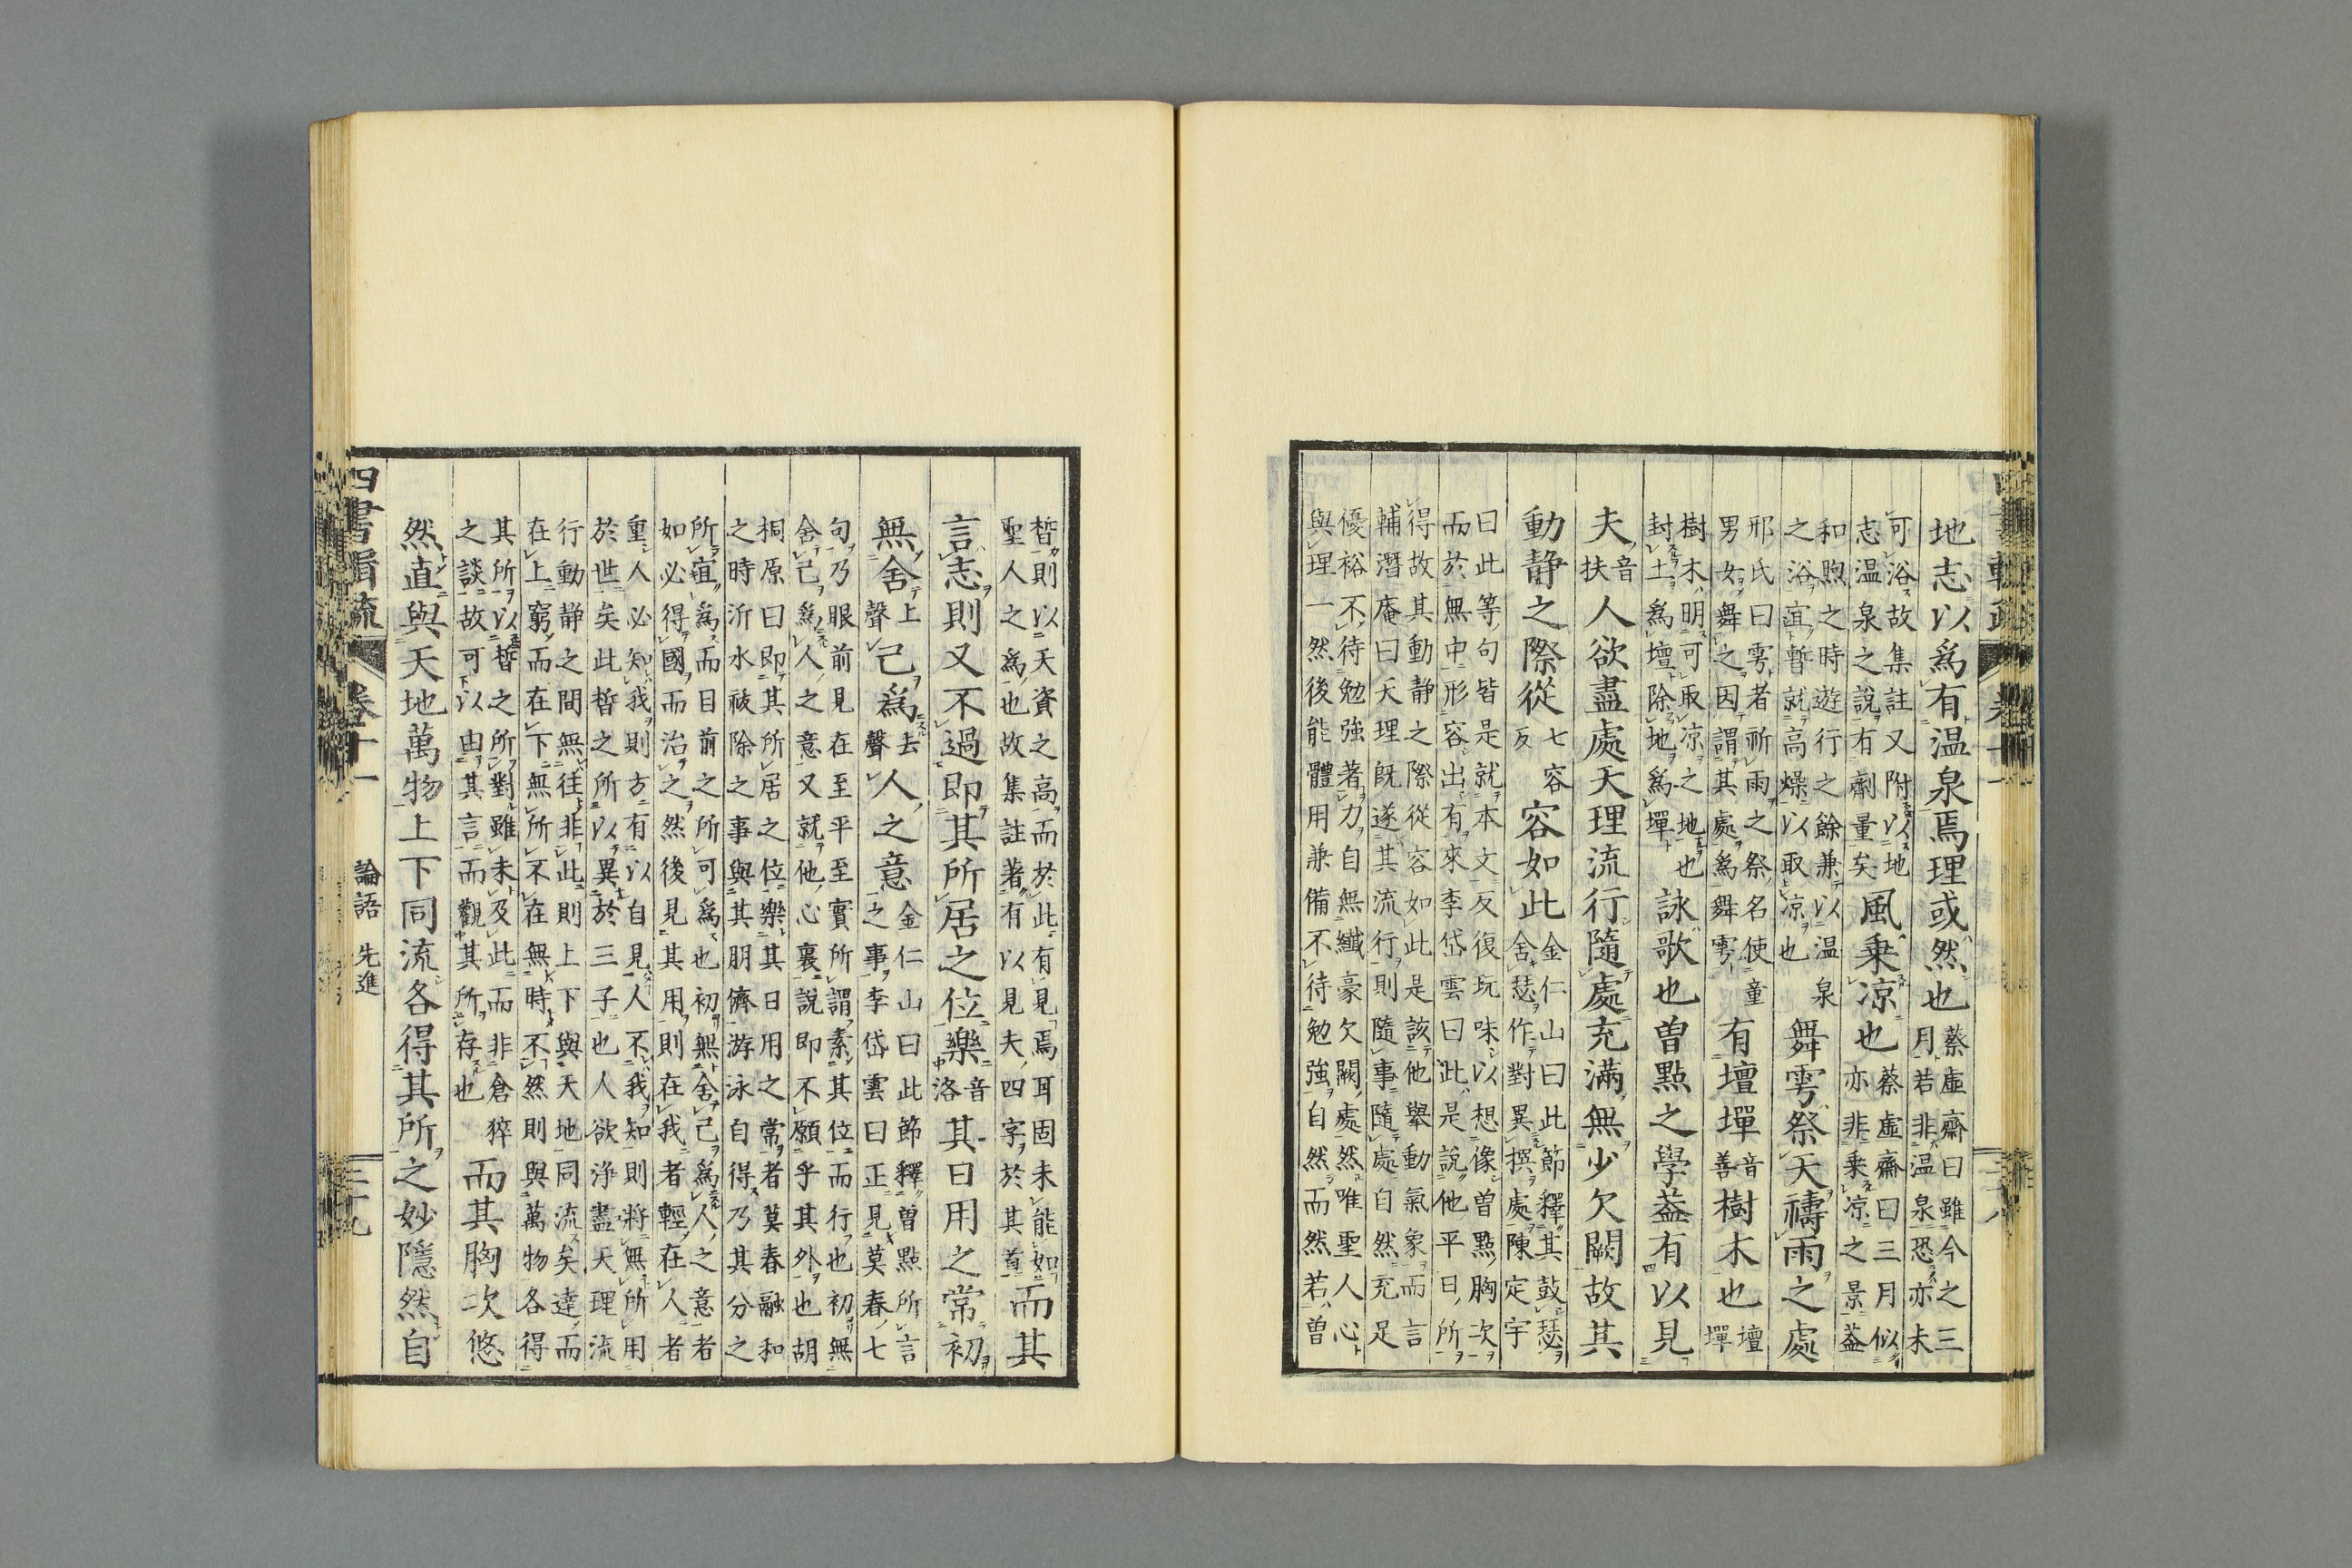 地志以爲有温泉焉理或然也
蔡虛齋曰雖今之三
月若非温泉恐亦未
可浴故集註又附以地
志温泉之說有劑量矣
風乘凉也
蔡虛齋曰三月似
亦非乘凉之景葢
和煦之時遊行之餘兼以温泉
之浴誼暫就高燥以取凉也
舞雩祭天禱雨之處
邢氏曰雩者祈雨之祭名使童
男女舞之因謂其處爲舞雩
有壇墠音善樹木也
壇
墠
樹木明可取凉之地也
封土爲壇除地爲墠
詠歌也曽點之學葢有以見
夫音扶人欲盡處天理流行隨處充滿無少欠闕故其
動静之際從七容反容如此
金仁山曰此節釋其鼓瑟
舍瑟作對異撰處陳定宇
曰此等句皆是就本文反復玩味以想像曽點胸次
而於無中形容出有來李岱雲曰此是說他平日所
得故其動静之際從容如此是該他舉動氣象而言
輔潛庵曰天理既遂其流行則隨事隨處自然充足
優裕不待勉強著力自無纖豪欠闕處然唯聖人心
與理一然後能體用兼備不待勉強自然而然若曽
晳則以天資之高而於此有見焉耳固未能如
聖人之爲也故集註著有以見夫四字於其首
而其
言志則又不過即其所居之位樂音洛其日用之常初
無舍上聲己爲去聲人之意
金仁山曰此節釋曽點所言
之事李岱雲曰正見莫春七
句乃眼前見在至平至實所謂素其位而行也初無
舍己爲人之意又就他心裏說即不願乎其外也胡
桐原曰即其所居之位樂其日用之常者莫春融和
之時沂水祓除之事與其朋儕游泳自得乃其分之
所誼爲而目前之所可爲也初無舍己爲人之意者
如必得國而治之然後見其用則在我者輕在人者
重人必知我則方有以自見人不我知則將無所用
於世矣此晳之所以異於三子也人欲浄盡天理流
行動静之間無往非此則上下與天地同流矣達而
在上窮而在下無所不在無時不然則與萬物各得
其所以晳之所對雖未及此而非倉猝
之談故可以由其言而觀其所存也
而其胸次悠
然直與天地萬物上下同流各得其所之妙隱然自
卷十一
論語 先進
三十九